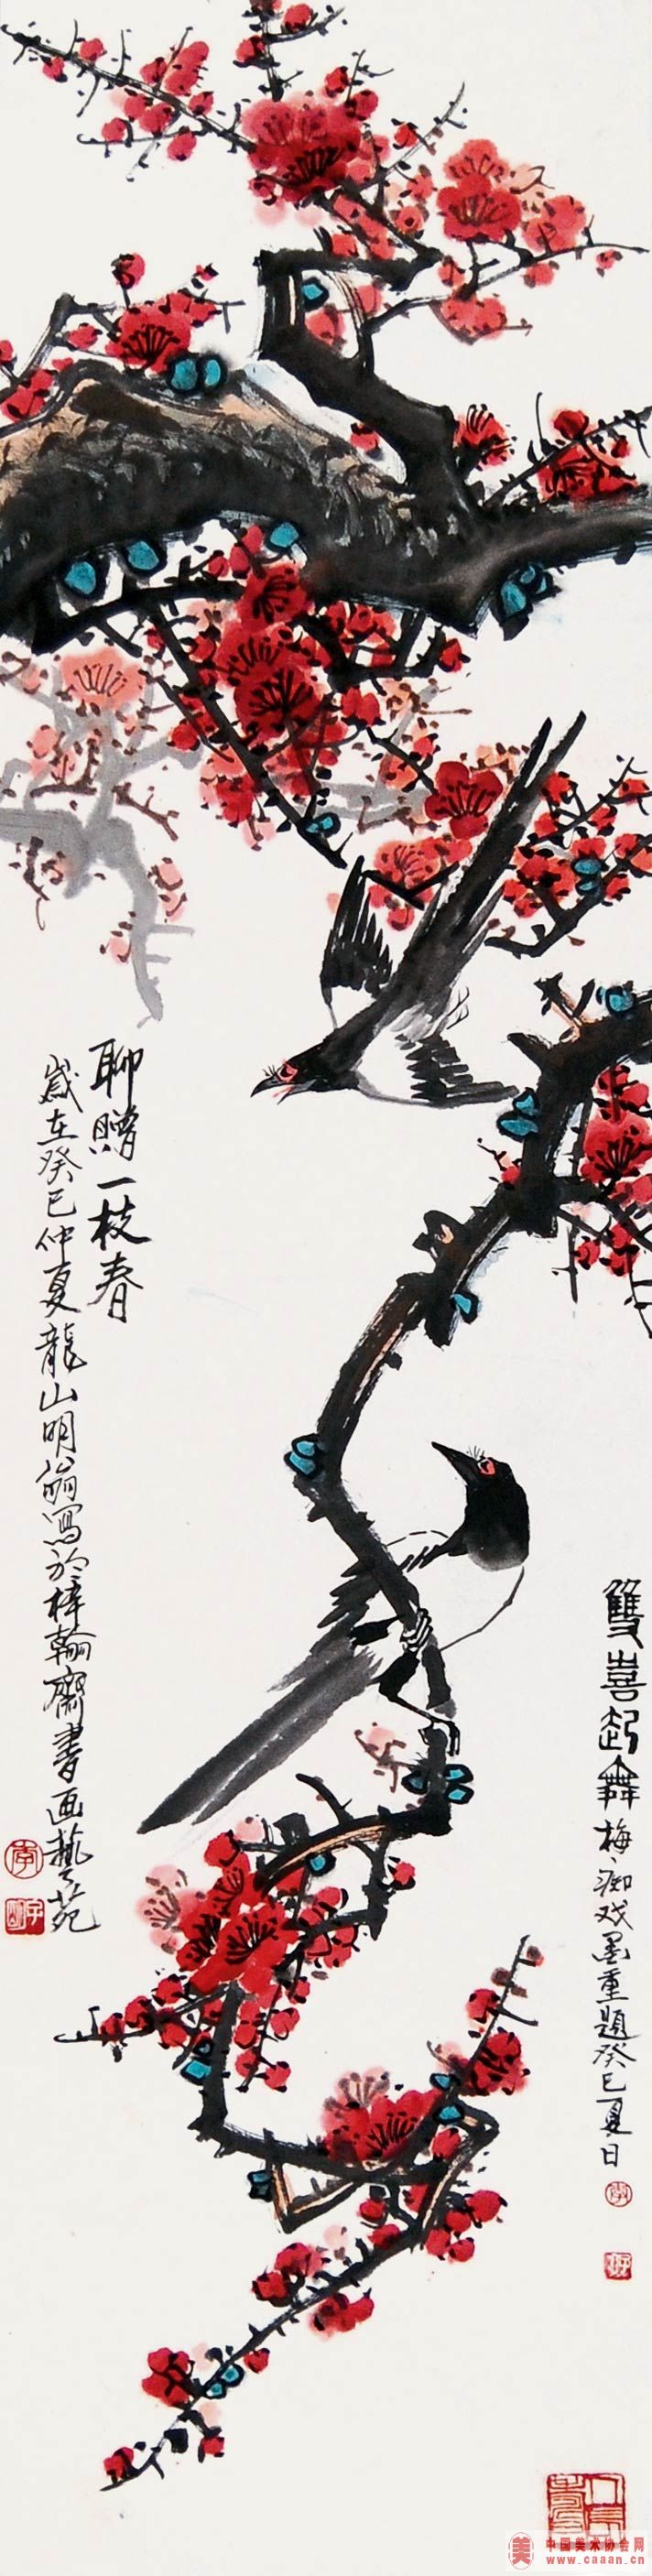 聊赠一枝春
歲在癸巳仲夏龍山明翁寫於梓翰齋書画藝苑
雙喜起舞梅痴戏墨重題癸巳夏日
中国美术协会网
www.caaan.cn